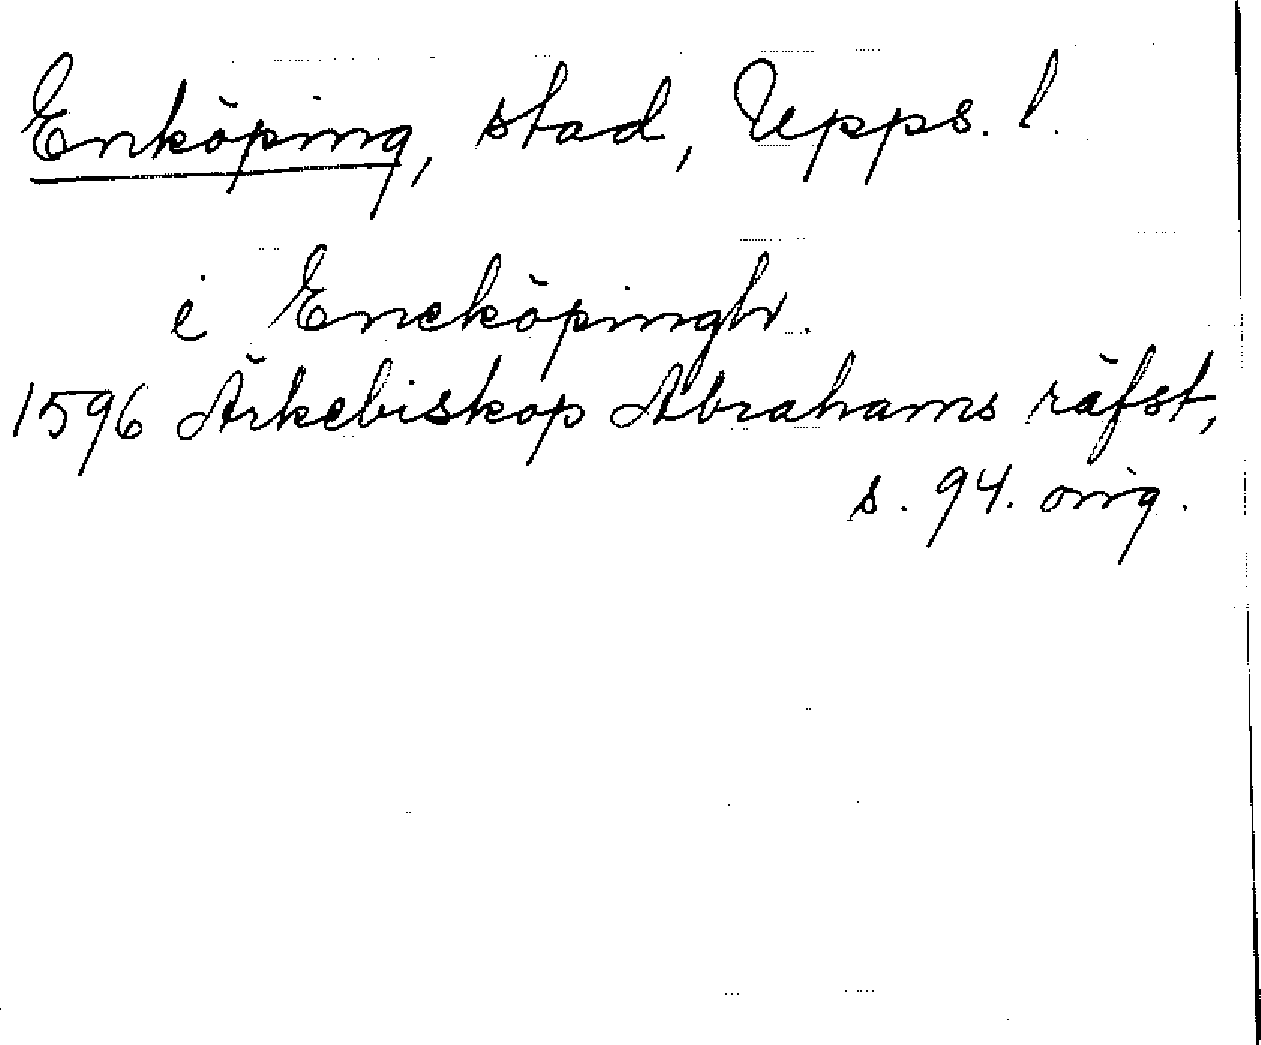 Enköping, stad, Upps. l.
i Eneköpingh.
1596 Ärkebiskop Abrahams räfst,
s. 94. orig.